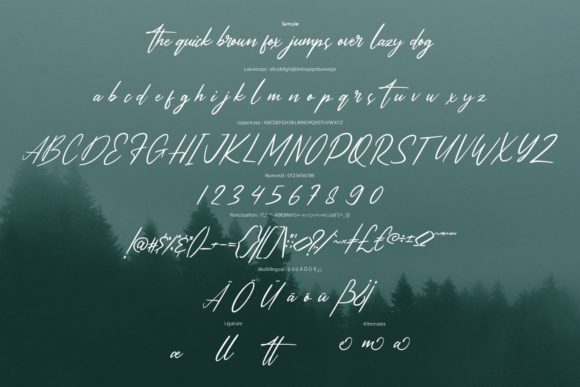 Sample
the quick brown fox jumps over lazy dog
Lowercase : abcdefghijklmnopqrstuvwxyz
a b c d e f g h i j k l m n o p q r s t u v w x y z
Uppercase : ABCDEFGHIJKLMNOPQRSTUVWXYZ
ABCDEFGHIJKLMNOPQRSTUVWXYZ
Numeral : 0123456789
1 2 3 4 5 6 7 8 9 0
Punctuation :
!@#$%
Multilingual :
Ä Ö Ü ä ö ü β ¿ ¡
Ligature
Alternates
æ ll tt
o m a